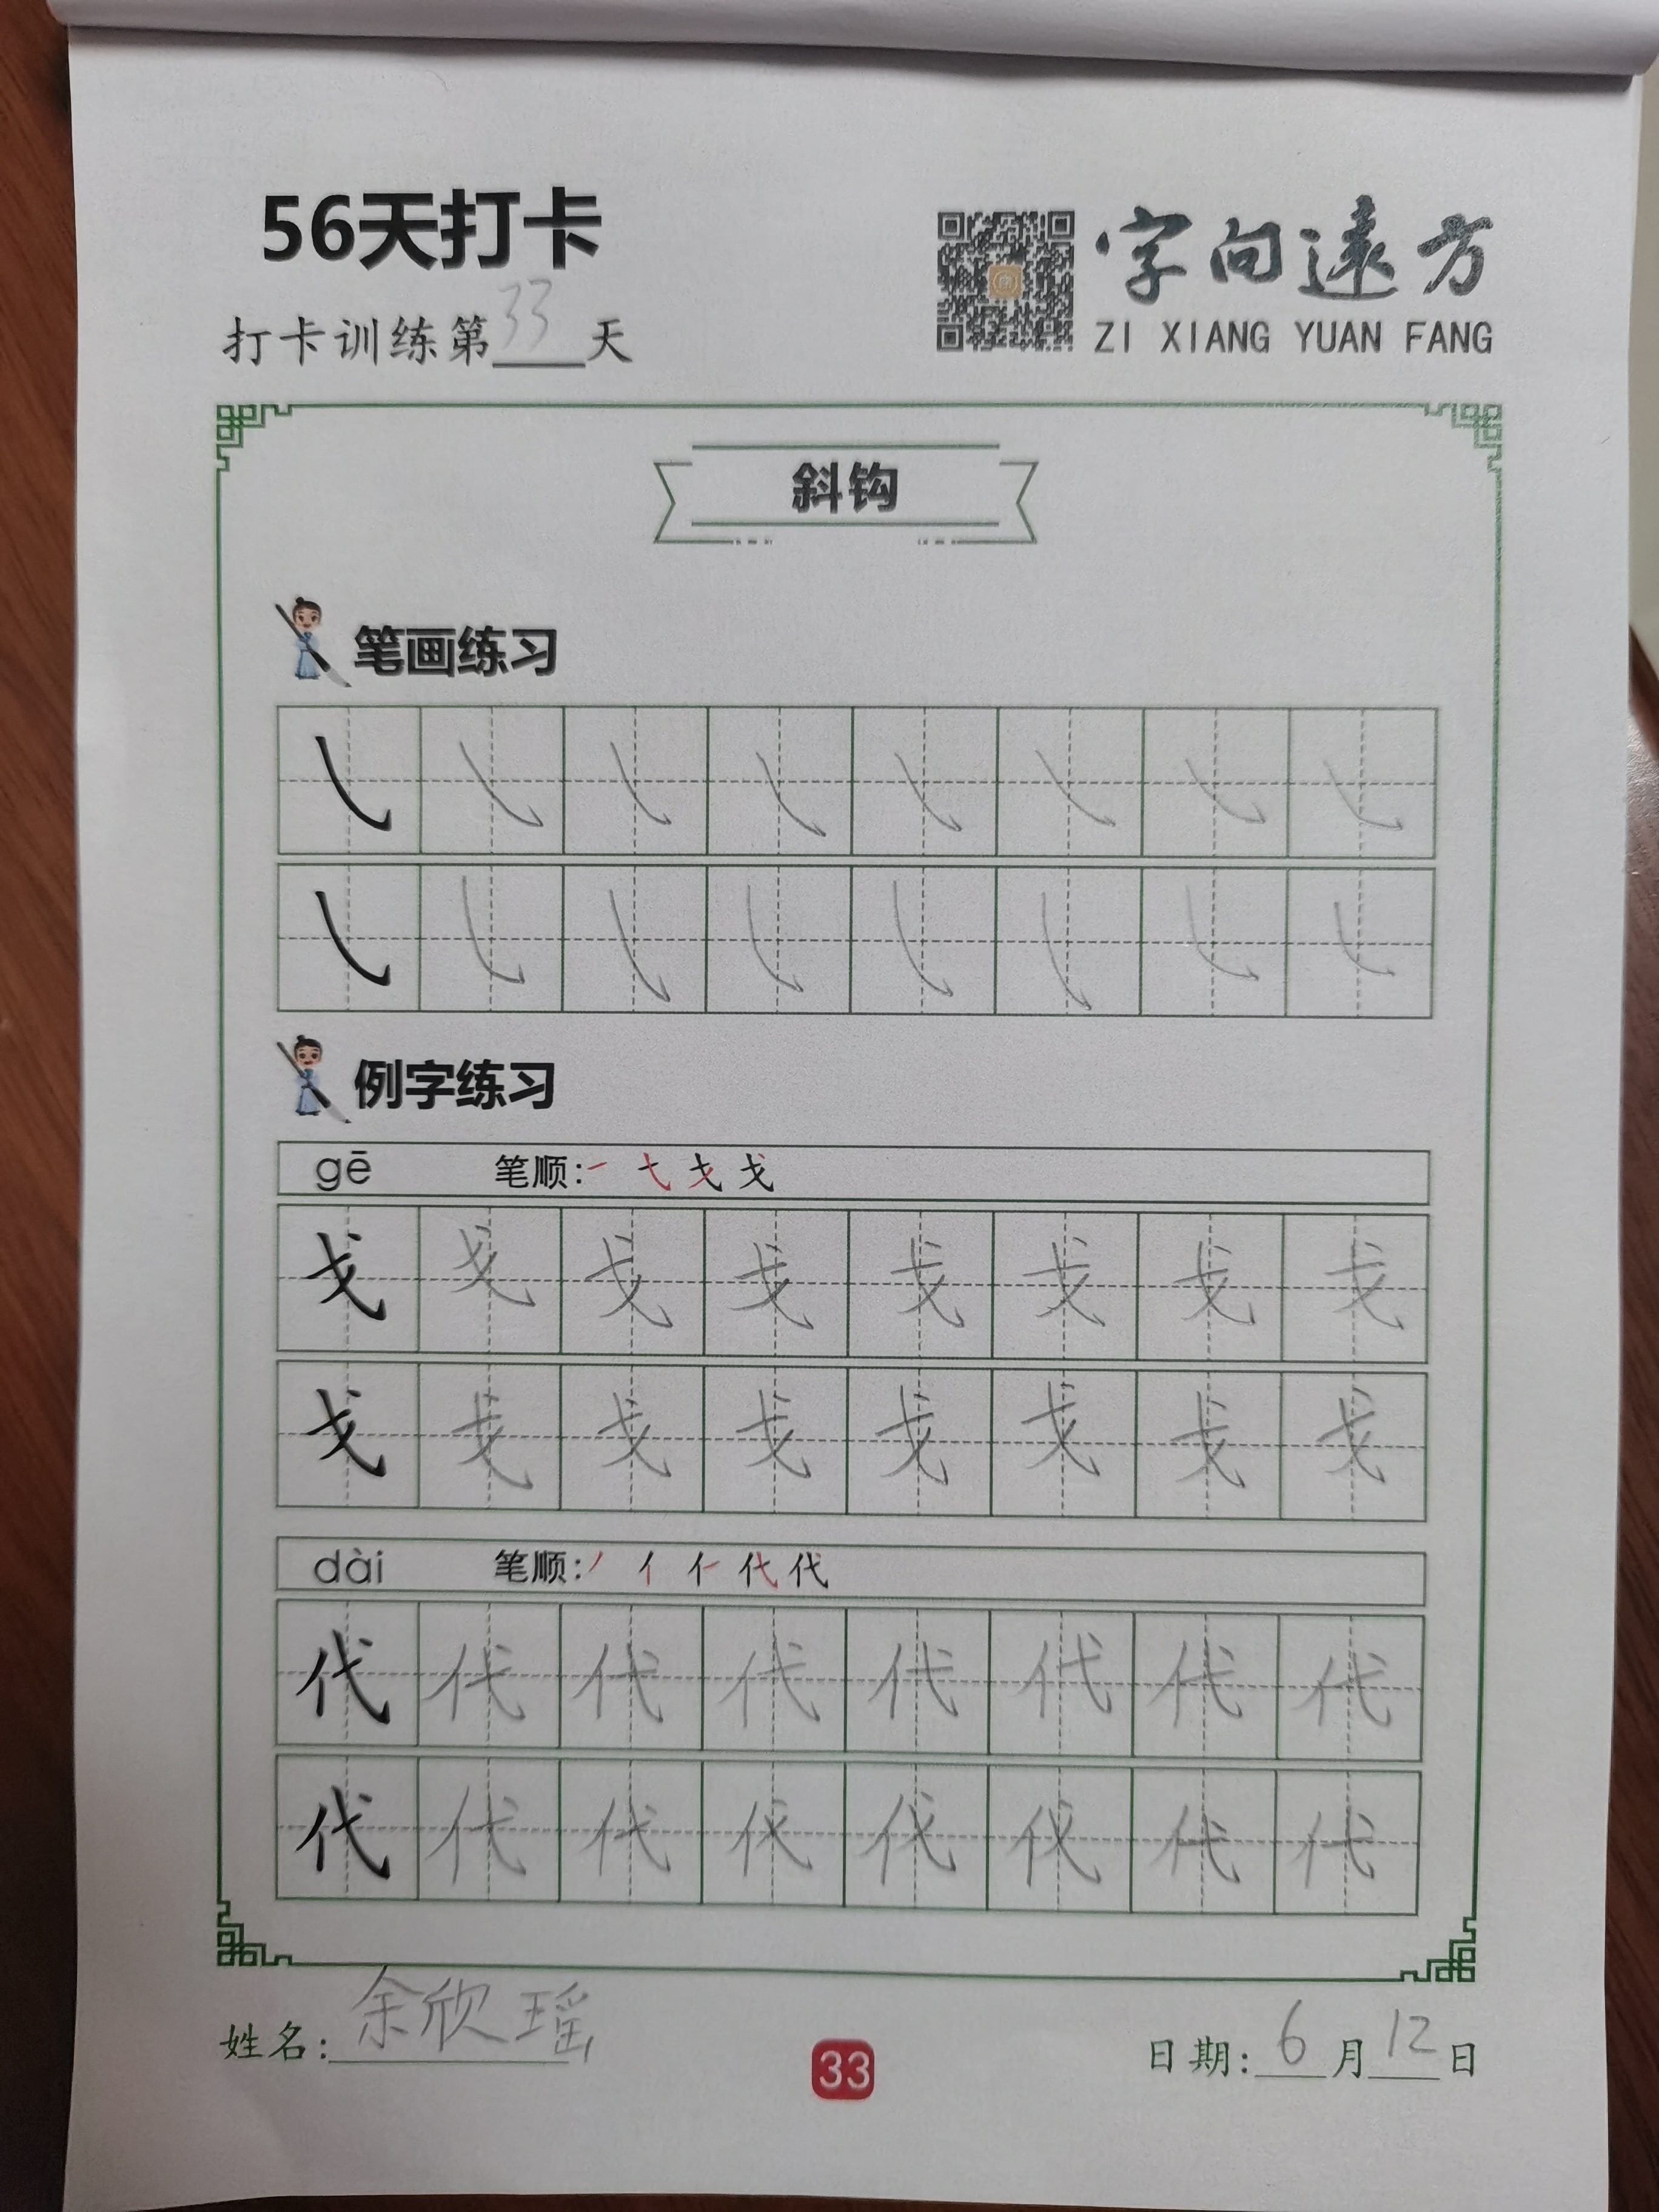 56天打卡
打卡训练第33天
字向遠方
ZI XIANG YUAN FANG
斜钩
笔画练习
㇂ ㇂ ㇂ ㇂ ㇂ ㇂ ㇂ ㇂
㇂ ㇂ ㇂ ㇂ ㇂ ㇂ ㇂ ㇂
例字练习
gē 笔顺: 一 弋 戈 戈
戈 戈 戈 戈 戈 戈 戈 戈
戈 戈 戈 戈 戈 戈 戈 戈
dài 笔顺: 丿 亻 仁 代 代
代 代 代 代 代 代 代 代
代 代 代 代 代 代 代 代
姓名: 余欣瑶
33
日期: 6月12日